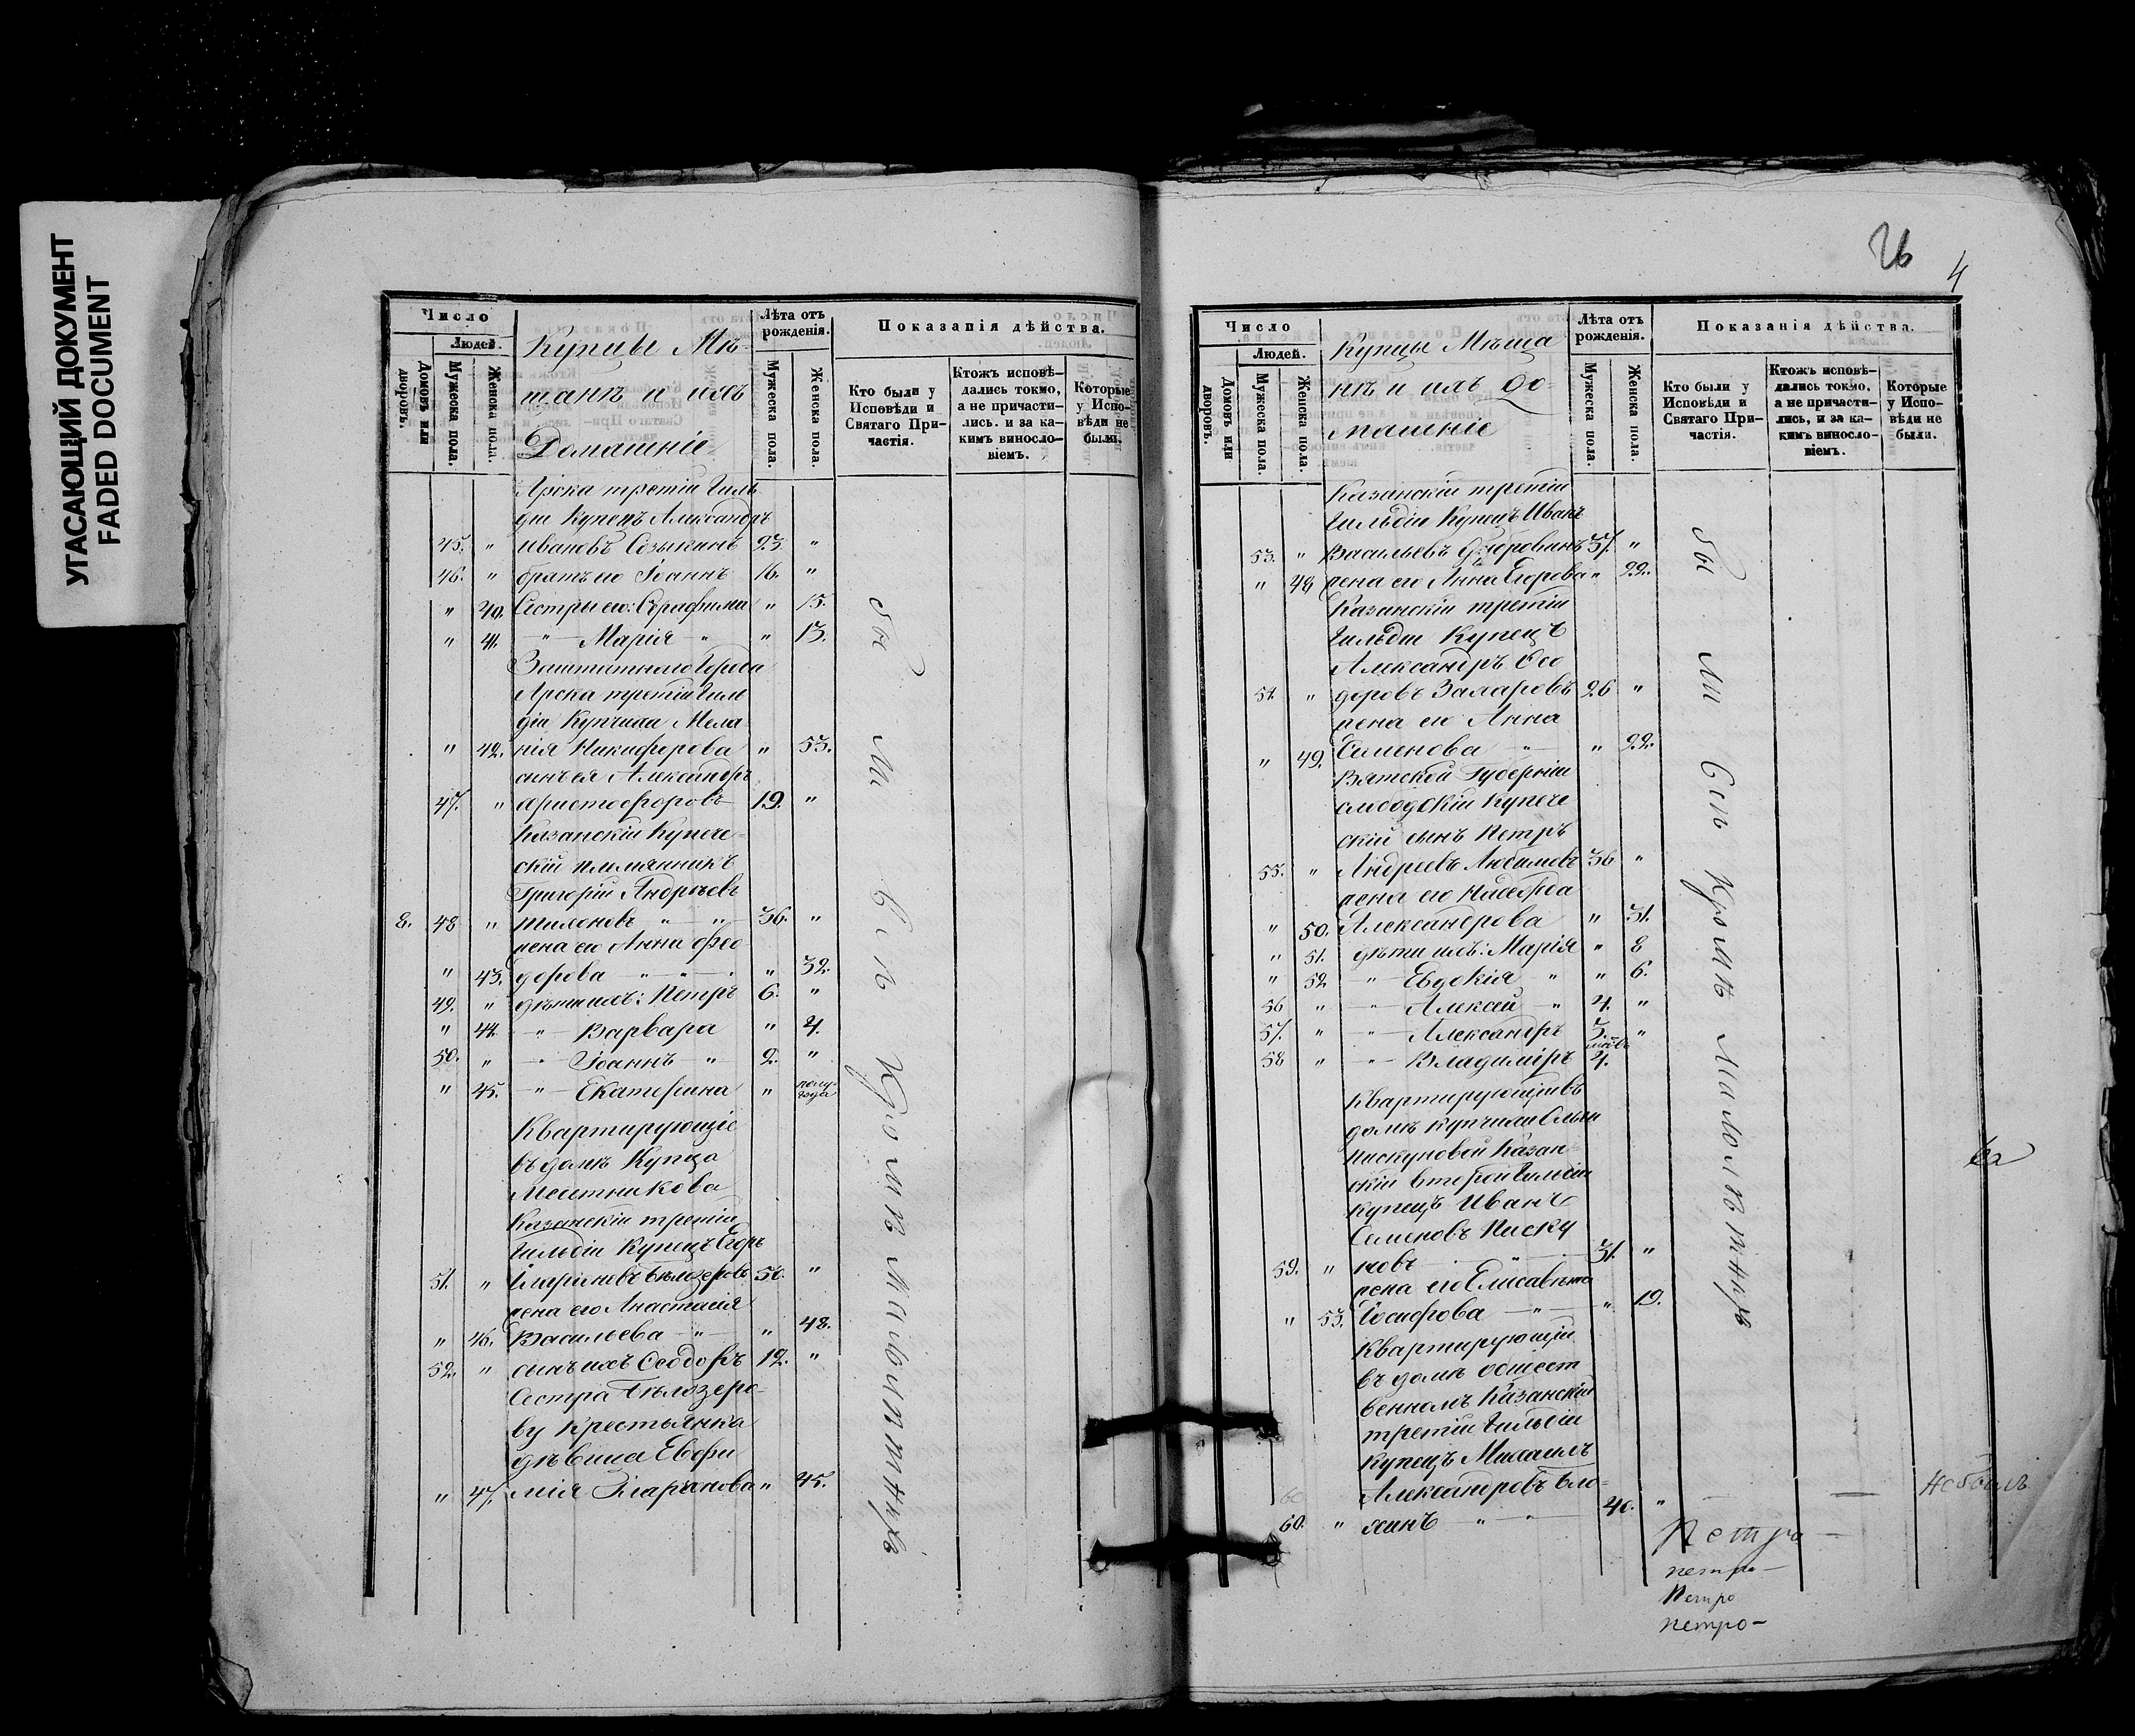 УГАСАЮЩИЙ ДОКУМЕНТ
FADED DOCUMENT
Число
Людей.
Домовъ или дворовъ.
Мужеска пола.
Женска пола.
Купцы Мѣ-
щанѣ и ихъ
Домашніе
Лѣта отъ рожденія.
Мужеска пола.
Женска пола.
Показанія дѣйства.
Кто были у Исповѣди и Святаго При-частія.
Ктожъ исповѣ-дались токмо, а не причасти-лись. и за ка-кимъ виносло-віемъ.
Которые у Испо-вѣди не были.
Арска третіи Гиль
діи Купецъ Александръ
45. " Ивановъ Созыкинъ 23 "
46. " братъ его Іоаннъ 16. "
" 40. Сестры его: Серафима " 15.
" 41. " Марія " " 13.
Заштатнаго Города
Арска третіи Гиль
діи Купчиха Мела
" 42. нія Никифорова " 53.
сынъ ея Александръ
47. " Христофоровъ 19. "
Казанскіи Купече-
скіи племянникъ
Григоріи Андреевъ
8. 48 " " " 36. "
жена его Анна Фео
" 43. дорова " " " 32.
49. " дѣти ихъ: Петръ 6. "
" 44. " Варвара " 4.
50. " " Іоаннъ " 2. "
" 45. " Екатерина " полу-года
Квартирующіе
въ домѣ Купца
Местникова
Казанскіи третіи
Гильдіи Купецъ Егоръ
51. " Иларіоновъ Бѣлозеровъ 50. "
жена его Анастасія
" 46. Васильева " " 48.
52. " сынъ ихъ Ѳеодоръ 12. "
Сестра Бѣлозеро-
ву Крестьянка
дѣвица Евфи
" 47. мія Иларіонова " 45.
бы ли Всѣ Кромѣ малолѣтнихъ
26
4
Число
Людей.
Домовъ или дворовъ.
Мужеска пола.
Женска пола.
Купцы Мѣща
нѣ и ихъ до-
машніе
Лѣта отъ рожденія.
Мужеска пола.
Женска пола.
Показанія дѣйства.
Кто были у Исповѣди и Святаго При-частія.
Ктожъ исповѣ-дались токмо, а не причасти-лись, и за ка-кимъ виносло-віемъ.
Которые у Испо-вѣди не были.
Казанскіи третіи
Гильдіи Купецъ Иванъ
53. " Васильевъ 37. "
" 48 жена его Анна Егорова " 22.
Казанскіи третіи
Гильдіи Купецъ
Александръ Ѳео
54. " доровъ Захаровъ 26 "
жена его Анна
" 49. Семенова " " 22.
Вятской Губерніи
слободскіи Купече
скіи сынъ Петръ
55. " Андреевъ Любимовъ 36 "
жена его Надежда
" 50. Александрова " 31.
" 51. дѣти ихъ: Марія " 8
" 52 " Евдокія " " 6.
56 " " Алексѣй " 4. "
57. " " Александръ 3. "
58 " " Владиміръ 4.
Квартирующіи въ
домѣ купчихи
Пискуновой Казан-
скіи второй Гильдіи
купецъ Иванъ
Семеновъ Писку
59. " новъ " 31. "
жена его Елисавета
" 53. Іосифова " " 19.
Квартирующіи
въ домѣ общест
венномъ Казанскіи
третіи Гильдіи
купецъ Михаилъ
Александровъ Бло-
60. " хинъ " 40. " не былъ
бы ли Всѣ Кромѣ малолѣтнихъ
Петро
петро
Петро
петро